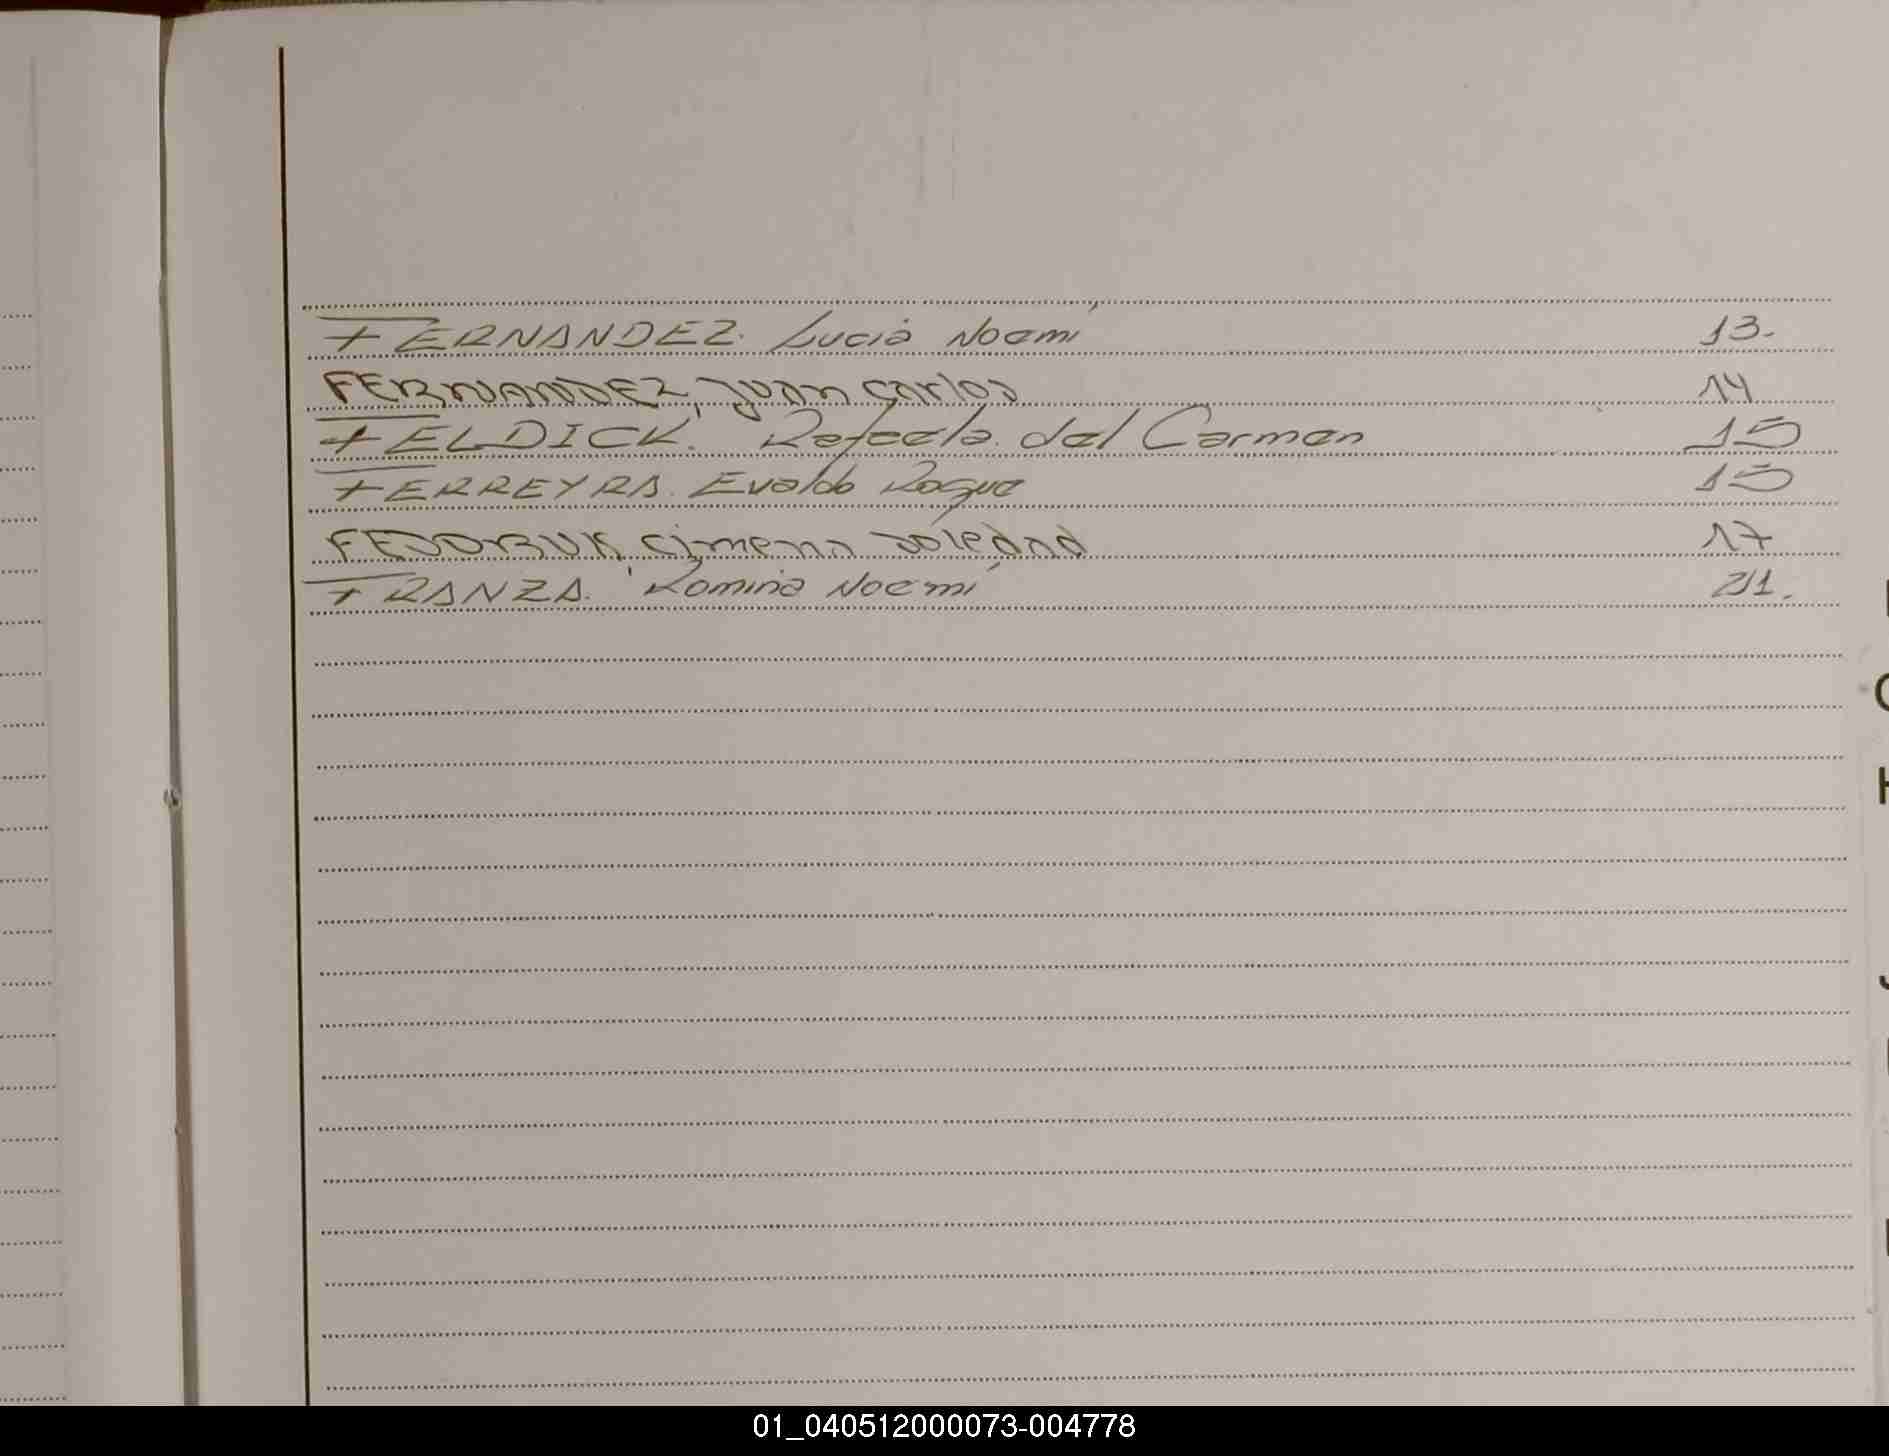 FERNANDEZ. Lucia Noemí 13.
FERNANDEZ, Juan Carlos 14
FELDICK. Rafaela del Carmen 15
FERREYRA. Evaldo Roque 15
FEDORUK, Cimena Soledad 17
FRANZA. Romina Noemí 21.
01_040512000073-004778